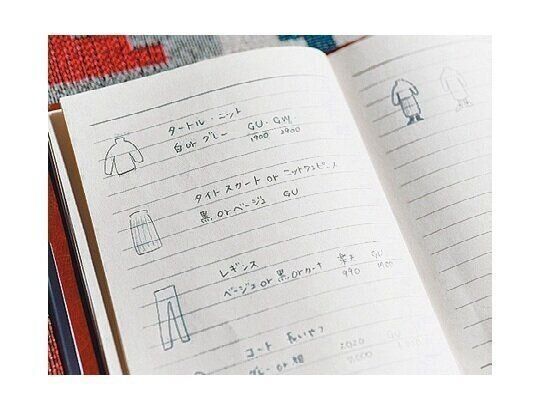 タートル・ニット
白 or グレー GU・GW
1900 2900
タイトスカート or ニットワンピース
黒 or ベージュ GU
レギンス
ベージュ or 黒 or 楽天 GU
990
コート 長いやつ 2020 GU
グレー or 紺